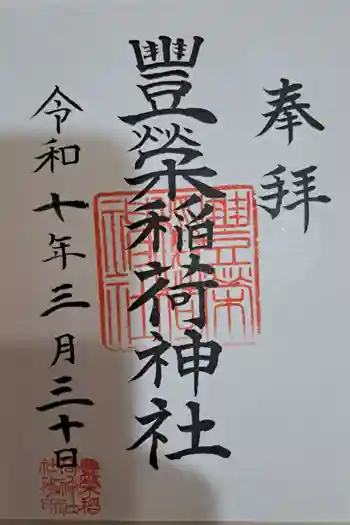 奉拝
豐榮稲荷神社
令和十年三月三十日
豊栄
稲荷
神社
豊栄稲
荷神社
社務所